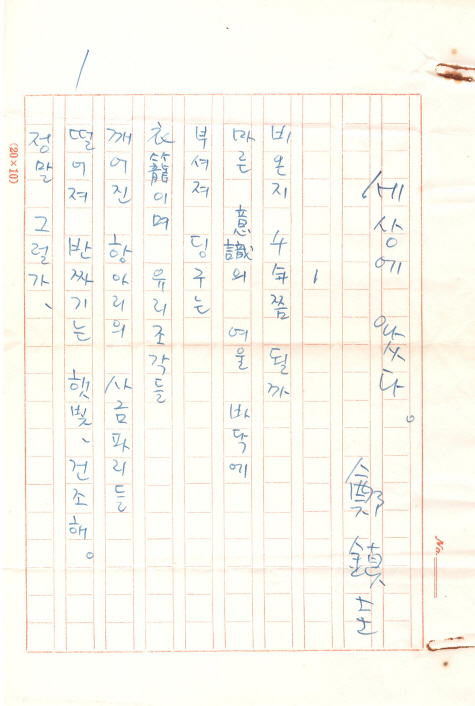 No.
세상에 왔다。
鄭鎭圭
1
비 온지 4年쯤 될까
마른 意識의 여울 바닥에
부셔져 딩구는
衣籠이며 유리조각들
깨어진 항아리의 사금파리들
떨어져 반짜기는 햇빛、건조해。
정말 그럴가、
1
(20×10)